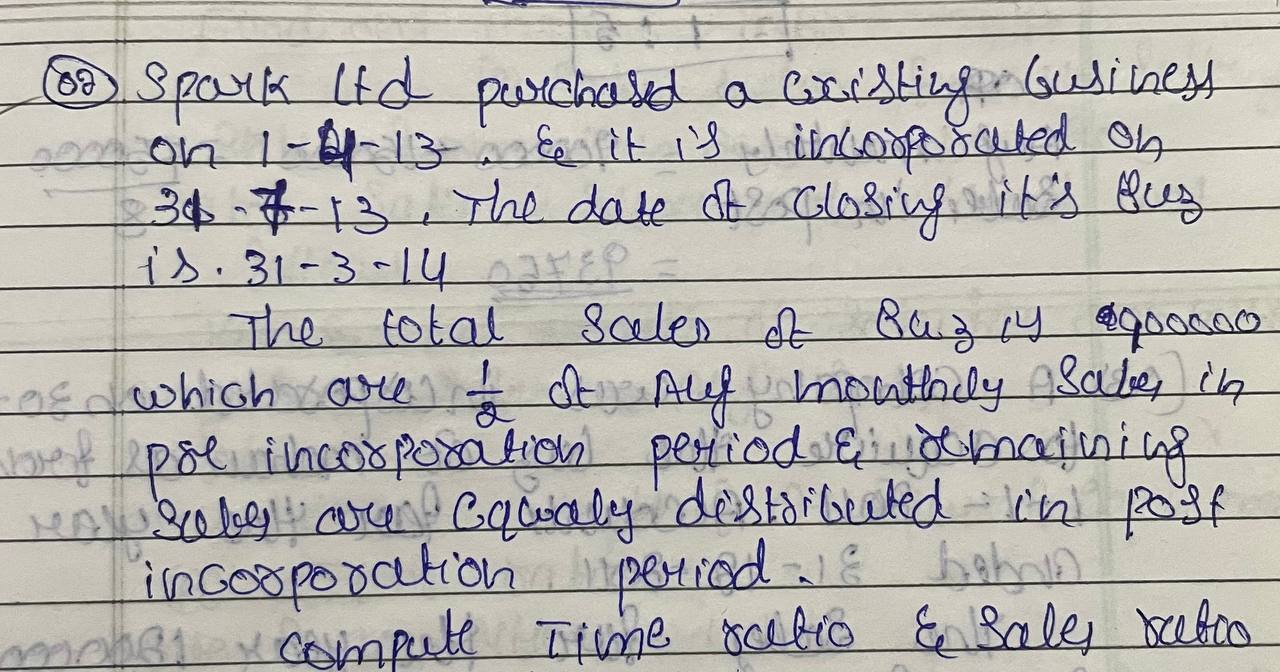 02 Spark Ltd purchased a existing business
on 1-4-13. & it is incorporated on
31-7-13. The date of closing it's Buz
is. 31-3-14
The total Sales of Buz is 900000
which are 1/2 of Avg monthly Sales in
pre incorporation period & remaining
Sales are Equaly distributed in post
incorporation period.
compute Time ratio & Sales ratio